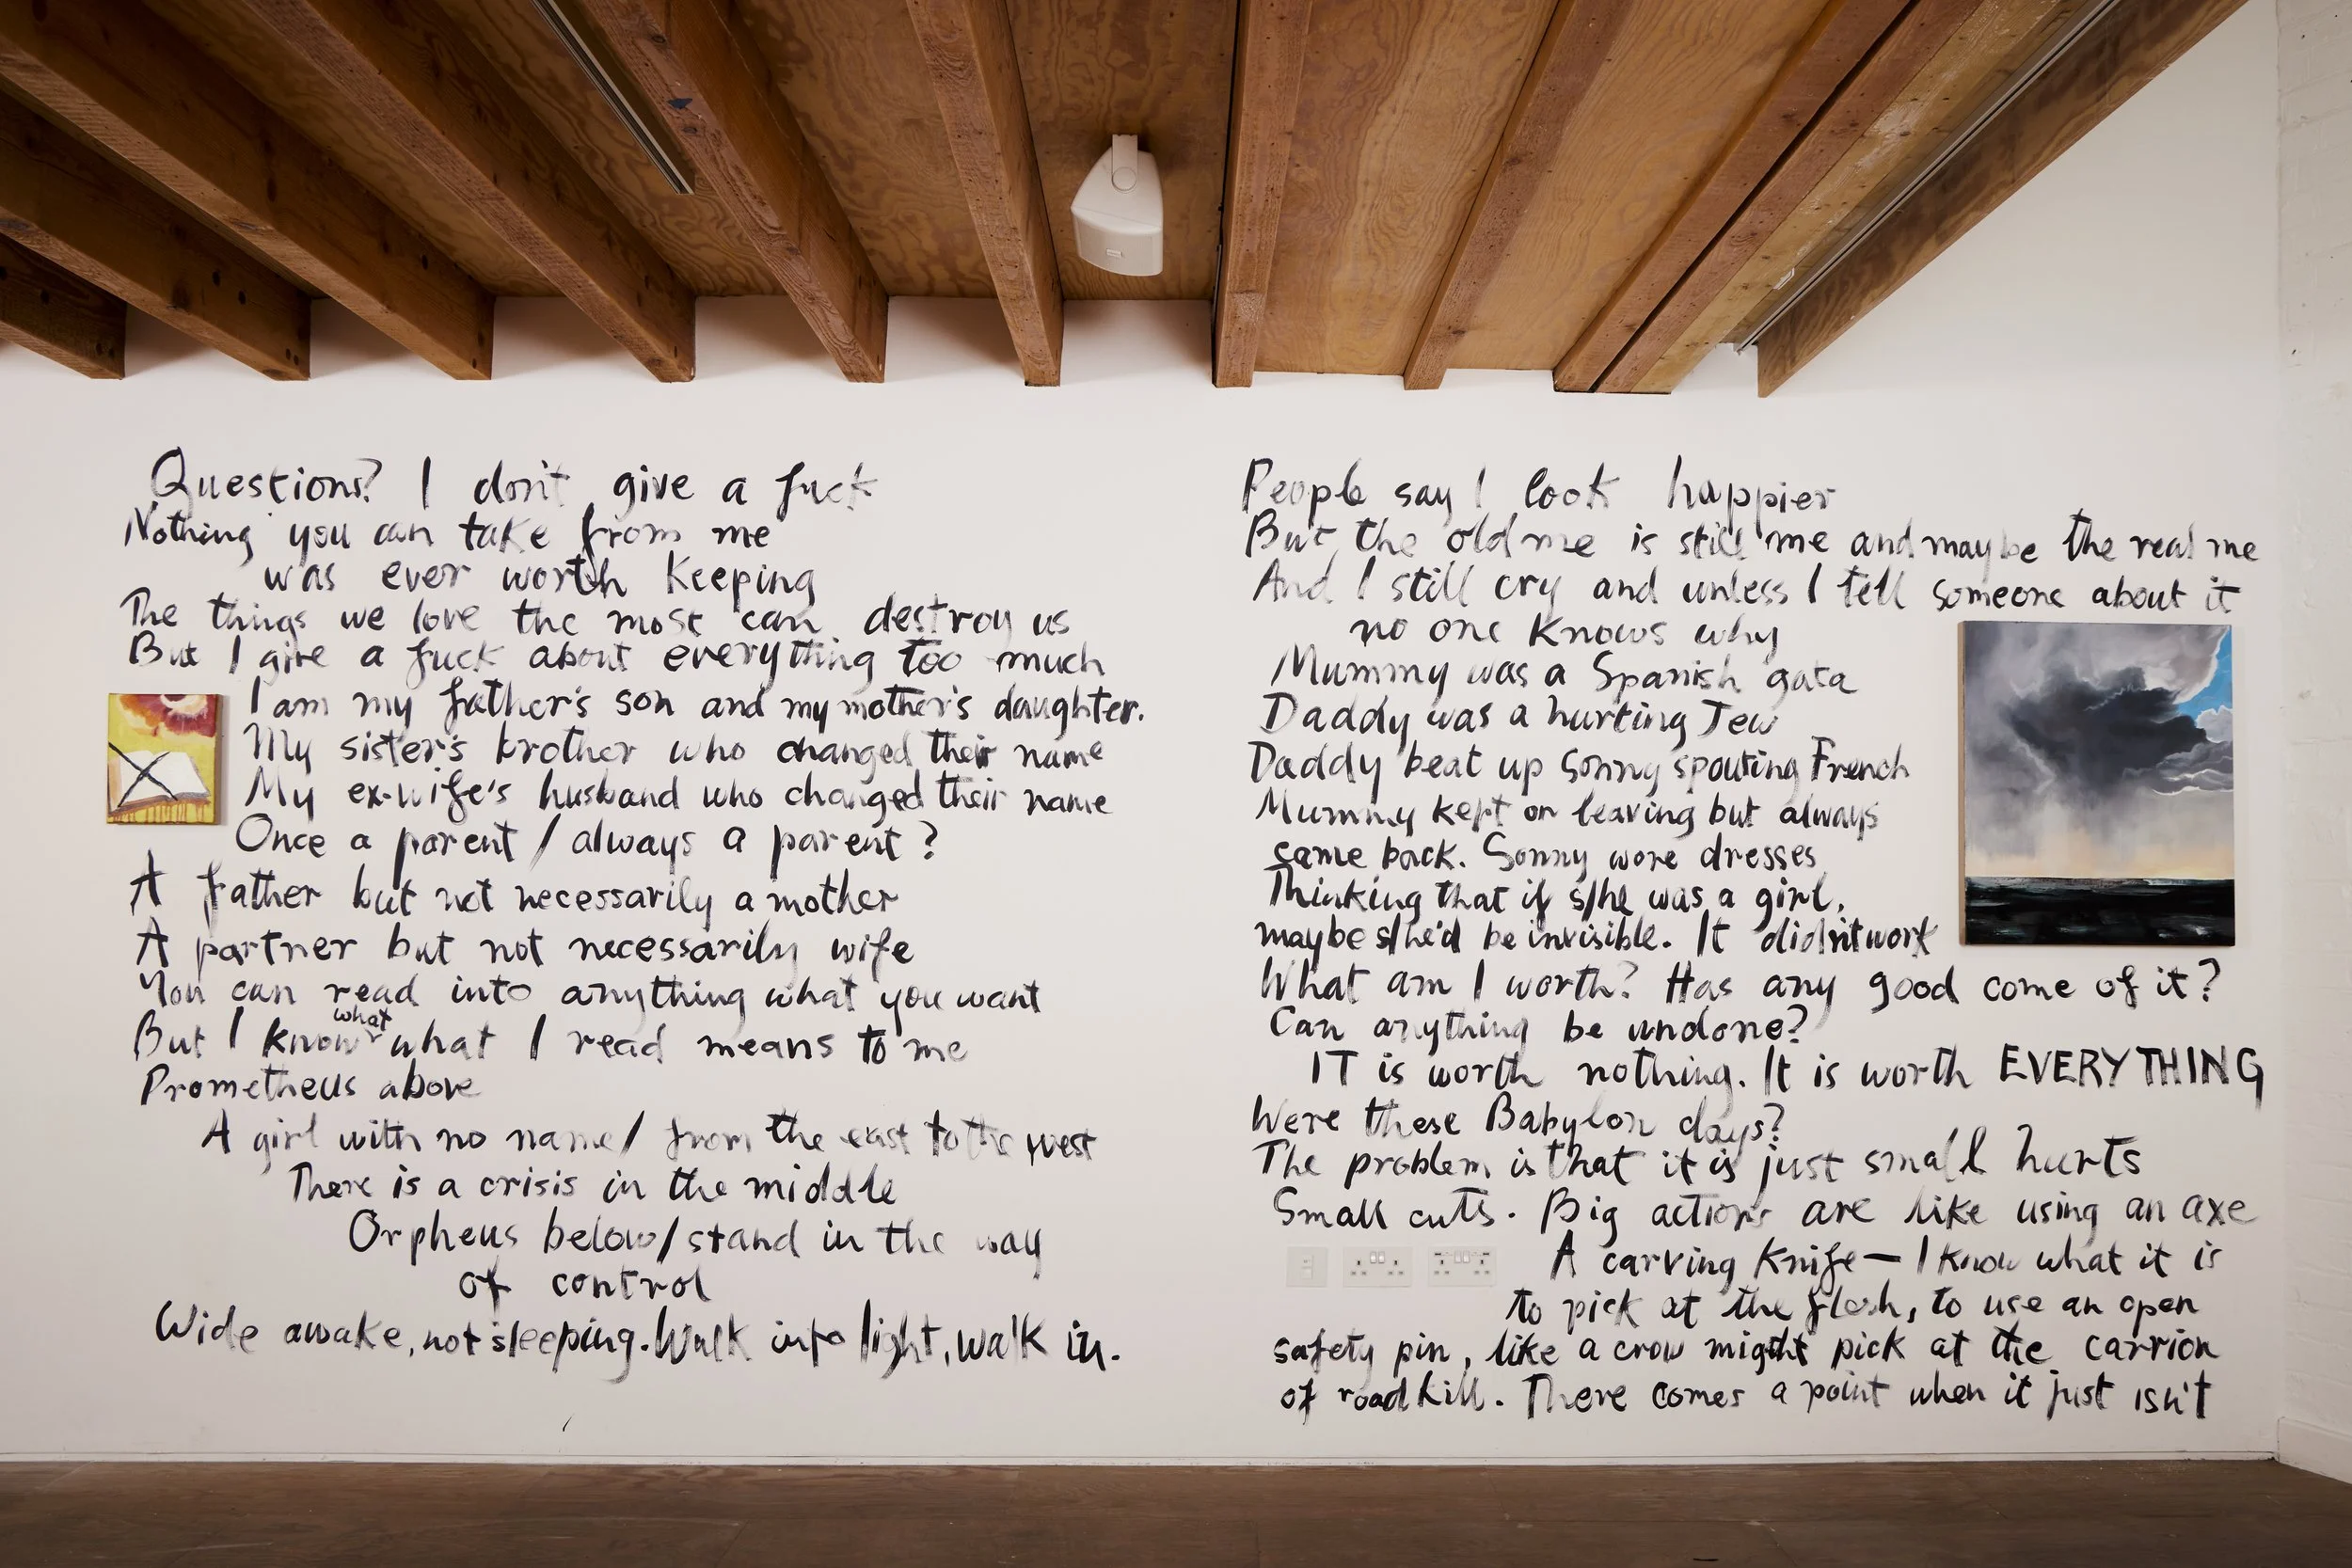 Questions? I don't give a fuck
Nothing you can take from me
was ever worth keeping
The things we love the most can destroy us
But I give a fuck about everything too much
I am my father's son and my mother's daughter.
My sister's brother who changed their name
My ex-wife's husband who changed their name
Once a parent / always a parent?
A father but not necessarily a mother
A partner but not necessarily wife
You can read into anything what you want
what
But I know what I read means to me
Prometheus above
A girl with no name / from the east to the west
There is a crisis in the middle
Orpheus below / stand in the way
of control
Wide awake, not sleeping. Walk into light, walk in.
People say I look happier
But, the old me is still me and maybe the real me
And I still cry and unless I tell someone about it
no one knows why
Mummy was a Spanish gata
Daddy was a hurting Jew
Daddy beat up Sonny spouting French
Mummy kept on leaving but always
came back. Sonny wore dresses
Thinking that if s/he was a girl,
maybe s/he'd be invisible. It didn't work
What am I worth? Has any good come of it?
Can anything be undone?
IT is worth nothing. It is worth EVERYTHING
Were these Babylon days?
The problem is that it is just small hurts
Small cuts. Big actions are like using an axe
A carving knife — I know what it is
to pick at the flesh, to use an open
safety pin, like a crow might pick at the carrion
of road kill. There comes a point when it just isn't